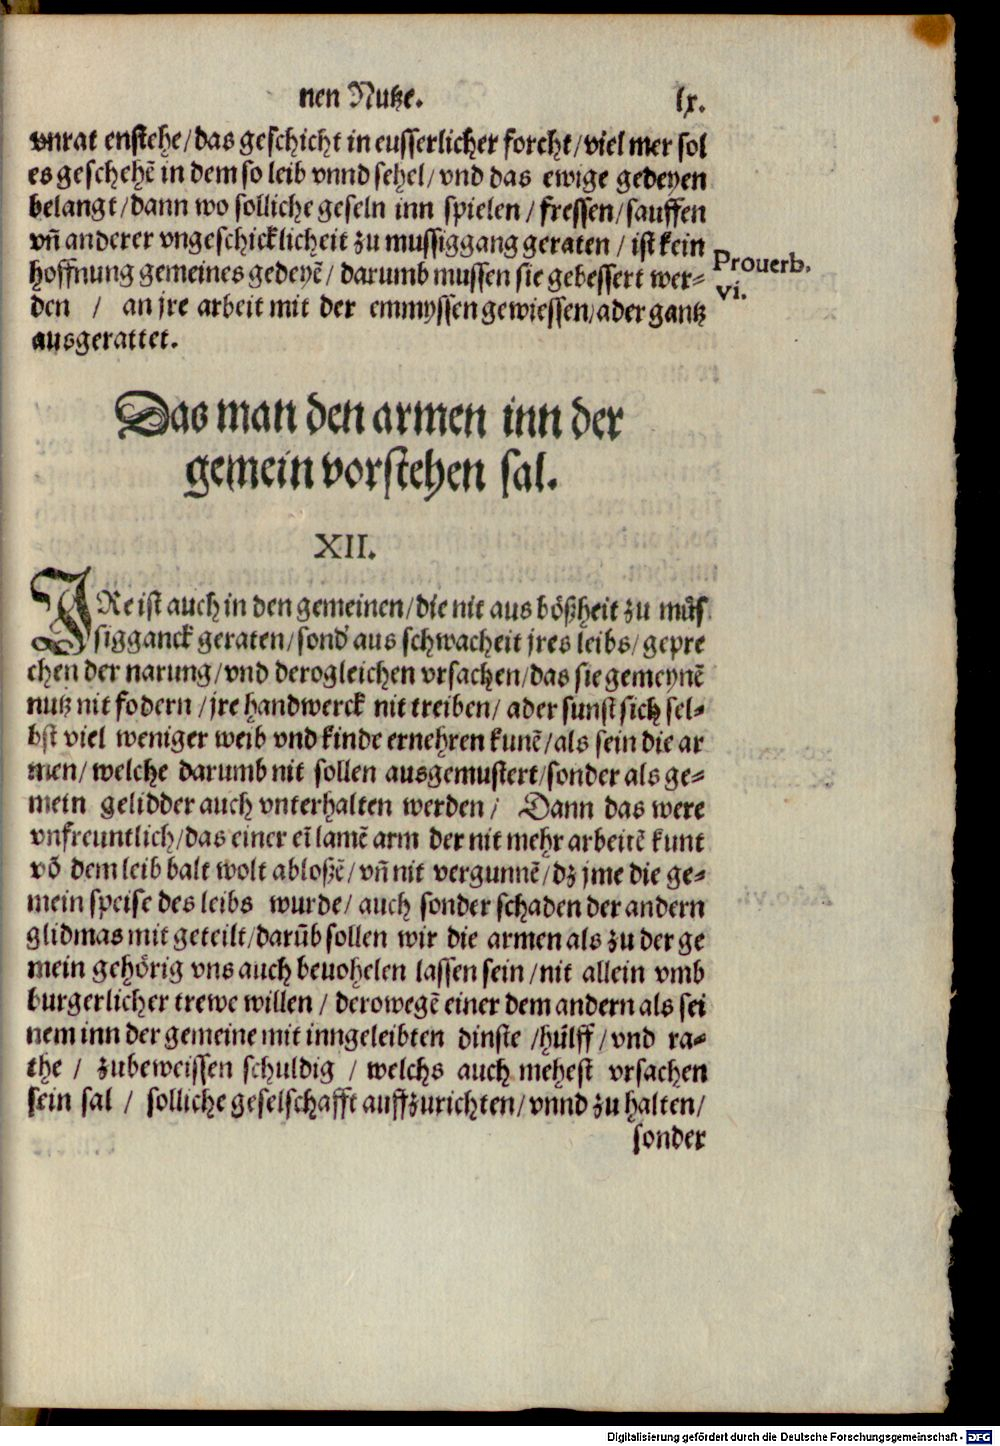 nen Nutze.
lx.
vnrat enstehe/das geschicht in eusserlicher forcht/viel mer sol
es geschehē in dem so leib vnnd sehel/vnd das ewige gedeyen
belangt/dann wo solliche geseln inn spielen/fressen/sauffen
vñ anderer vngeschicklicheit zu mussiggang geraten/ist kein
hoffnung gemeines gedeyē/darumb mussen sie gebessert wer-
den / an jre arbeit mit der emmyssen gewiessen/ader gantz
ausgerattet.
Prouerb.
vi.
Das man den armen inn der
gemein vorstehen sal.
XII.
IRe ist auch in den gemeinen/die nit aus bößheit zu müs
sigganck geraten/sond' aus schwacheit jres leibs/gepre
chen der narung/vnd derogleichen vrsachen/das sie gemeynē
nutz nit fodern/jre handwerck nit treiben/ader sunst sich sel-
bst viel weniger weib vnd kinde ernehren kunē/als sein die ar
men/welche darumb nit sollen ausgemustert/sonder als ge-
mein gelidder auch vnterhalten werden/ Dann das were
vnfreuntlich/das einer eī lamē arm der nit mehr arbeitē kunt
vō dem leib balt wolt abloßē/vñ nit vergunnē/dz jme die ge-
mein speise des leibs wurde/auch sonder schaden der andern
glidmas mit geteilt/darūb sollen wir die armen als zu der ge
mein gehörig vns auch beuohelen lassen sein/nit allein vmb
burgerlicher trewe willen/derowegē einer dem andern als sei
nem inn der gemeine mit inngeleibten dinste/hülff/vnd ra-
the / zubeweissen schuldig / welchs auch mehest vrsachen
sein sal / solliche geselschafft auffzurichten/vnnd zu halten/
sonder
Digitalisierung gefördert durch die Deutsche Forschungsgemeinschaft - DFG